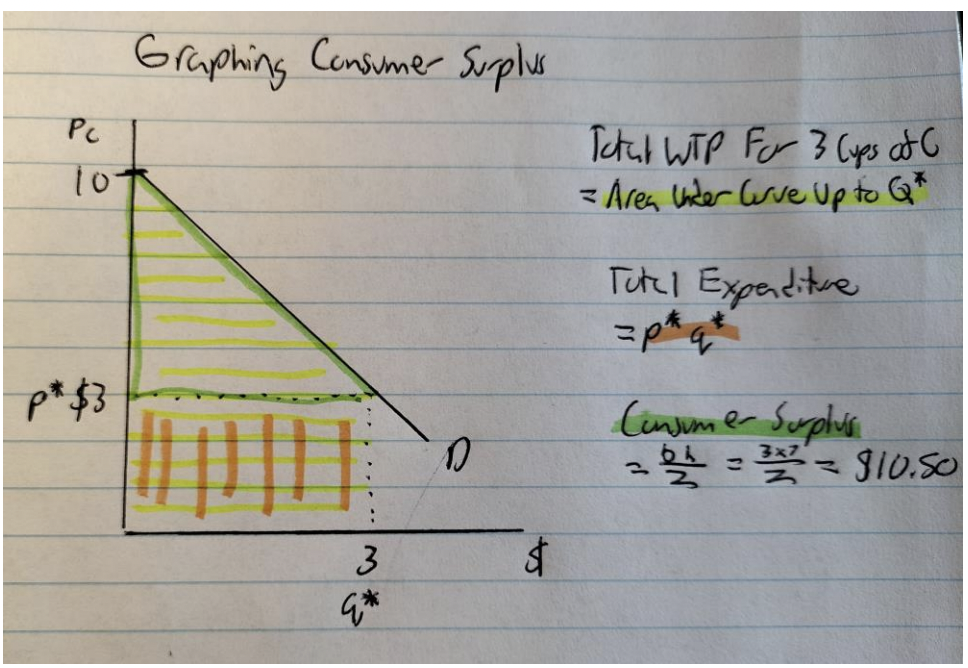 Graphing Consumer Surplus
Pc
10
p* $3
D
3
q*
Total WTP For 3 Cups of C
= Area Under Curve Up to Q*
Total Expenditure
= p* q*
Consumer Surplus
= bh/2 = 3x7/2 = $10.50